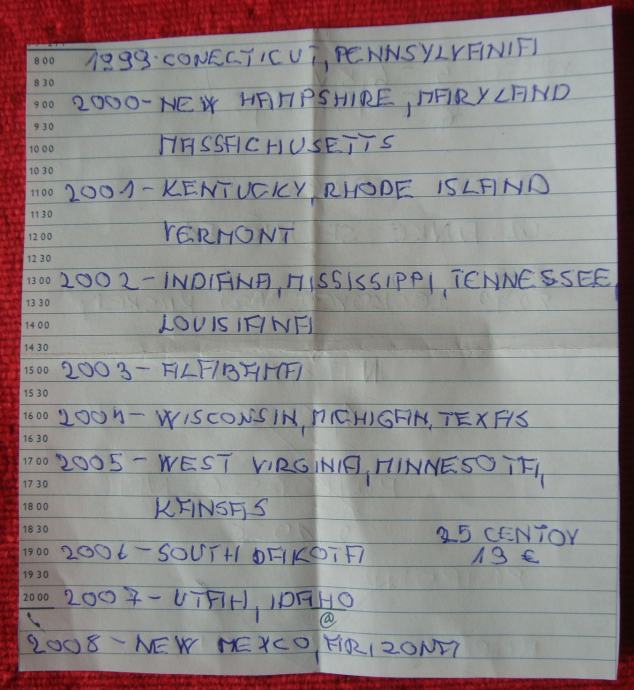 8 00 1999-CONECTICUT, PENNSYLVANIA
8 30
9 00 2000-NEW HAMPSHIRE, MARYLAND
9 30
10 00 MASSACHUSETTS
10 30
11 00 2001-KENTUCKY, RHODE ISLAND
11 30
12 00 VERMONT
12 30
13 00 2002-INDIANA, MISSISSIPPI, TENNESSEE,
13 30
14 00 LOUISIANA
14 30
15 00 2003-ALABAMA
15 30
16 00 2004-WISCONSIN, MICHIGAN, TEXAS
16 30
17 00 2005-WEST VIRGINIA, MINNESOTA,
17 30
18 00 KANSAS
18 30 25 CENTOV
19 00 2006-SOUTH DAKOTA 19 €
19 30
20 00 2007-UTAH, IDAHO
@
2008-NEW MEXCO, ARIZONA